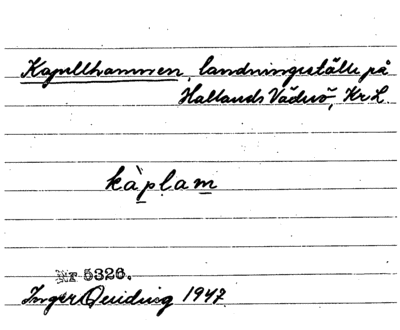 Kapellhamnen, landningsställe på
Hallands Väderö, Kr L.
kàplam
Nr 5326.
Inger 1947